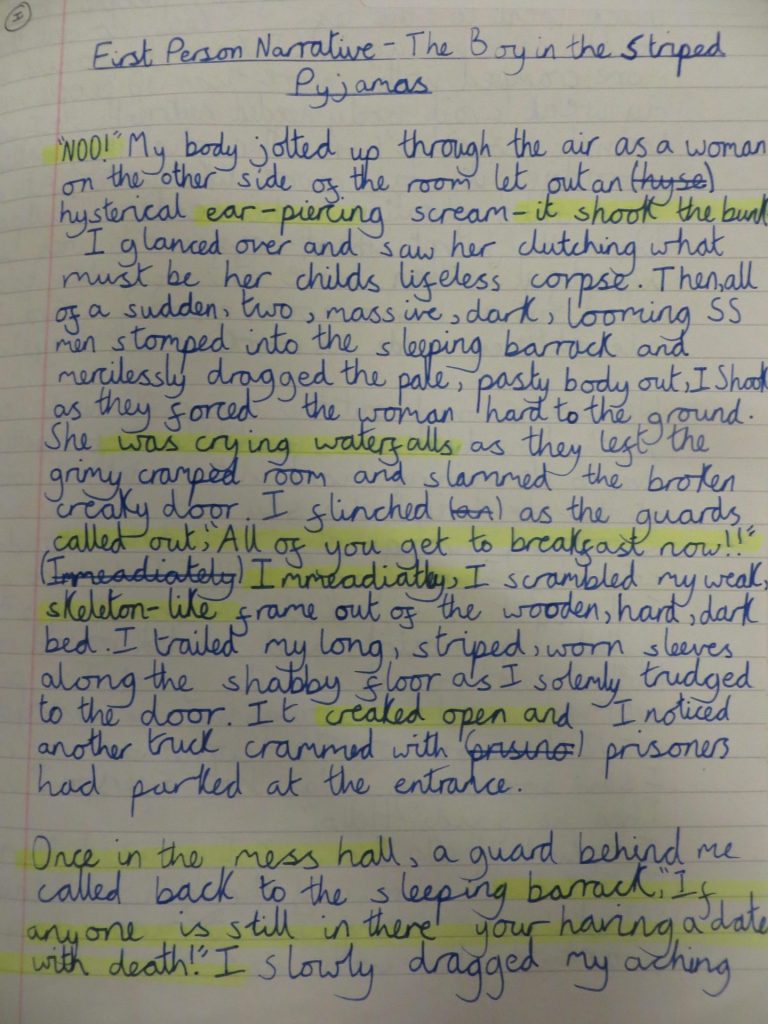 1
First Person Narrative - The Boy in the Striped
Pyjamas
"NOO!" My body jolted up through the air as a woman
on the other side of the room let out an (hyse)
hysterical ear-piercing scream - it shook the bunk
I glanced over and saw her clutching what
must be her childs lifeless corpse. Then, all
of a sudden, two, massive, dark, looming SS
men stomped into the sleeping barrack and
mercilessly dragged the pale, pasty body out, I Shook
as they forced the woman hard to the ground.
She was crying waterfalls as they left the
grimy cramped room and slammed the broken
creaky door. I flinched (an) as the guards
called out; "All of you get to breakfast now!!"
(Immeadiately) Immeadiatly, I scrambled my weak,
skeleton-like frame out of the wooden, hard, dark
bed. I trailed my long, striped, worn sleeves
along the shabby floor as I solemly trudged
to the door. It creaked open and I noticed
another truck crammed with (prisino) prisoners
had parked at the entrance.
Once in the mess hall, a guard behind me
called back to the sleeping barrack, "If
anyone is still in there your having a date
with death!" I slowly dragged my aching